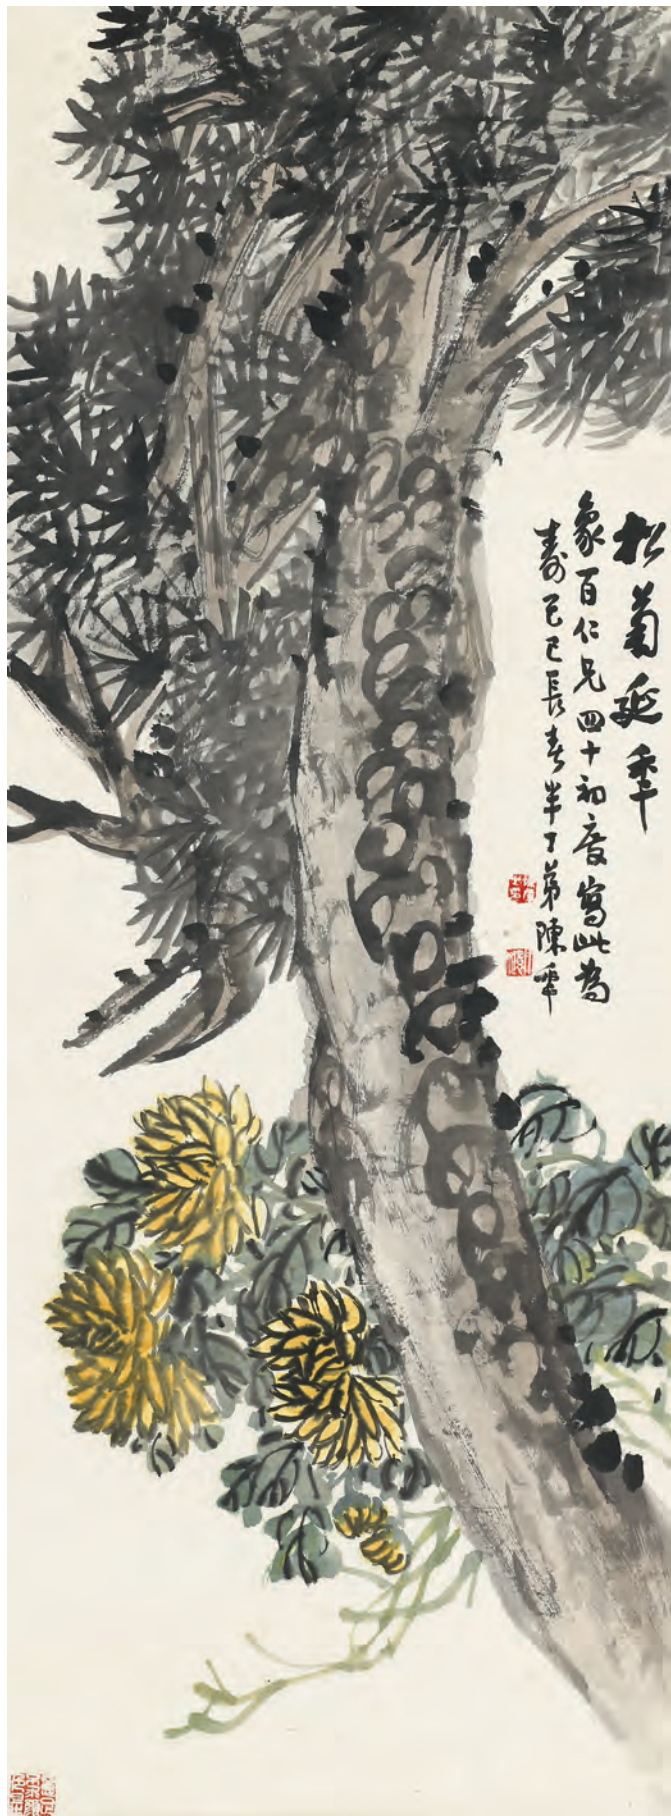 松菊延年
象百仁兄四十初度寫此為
壽己巳長春半丁弟陳年